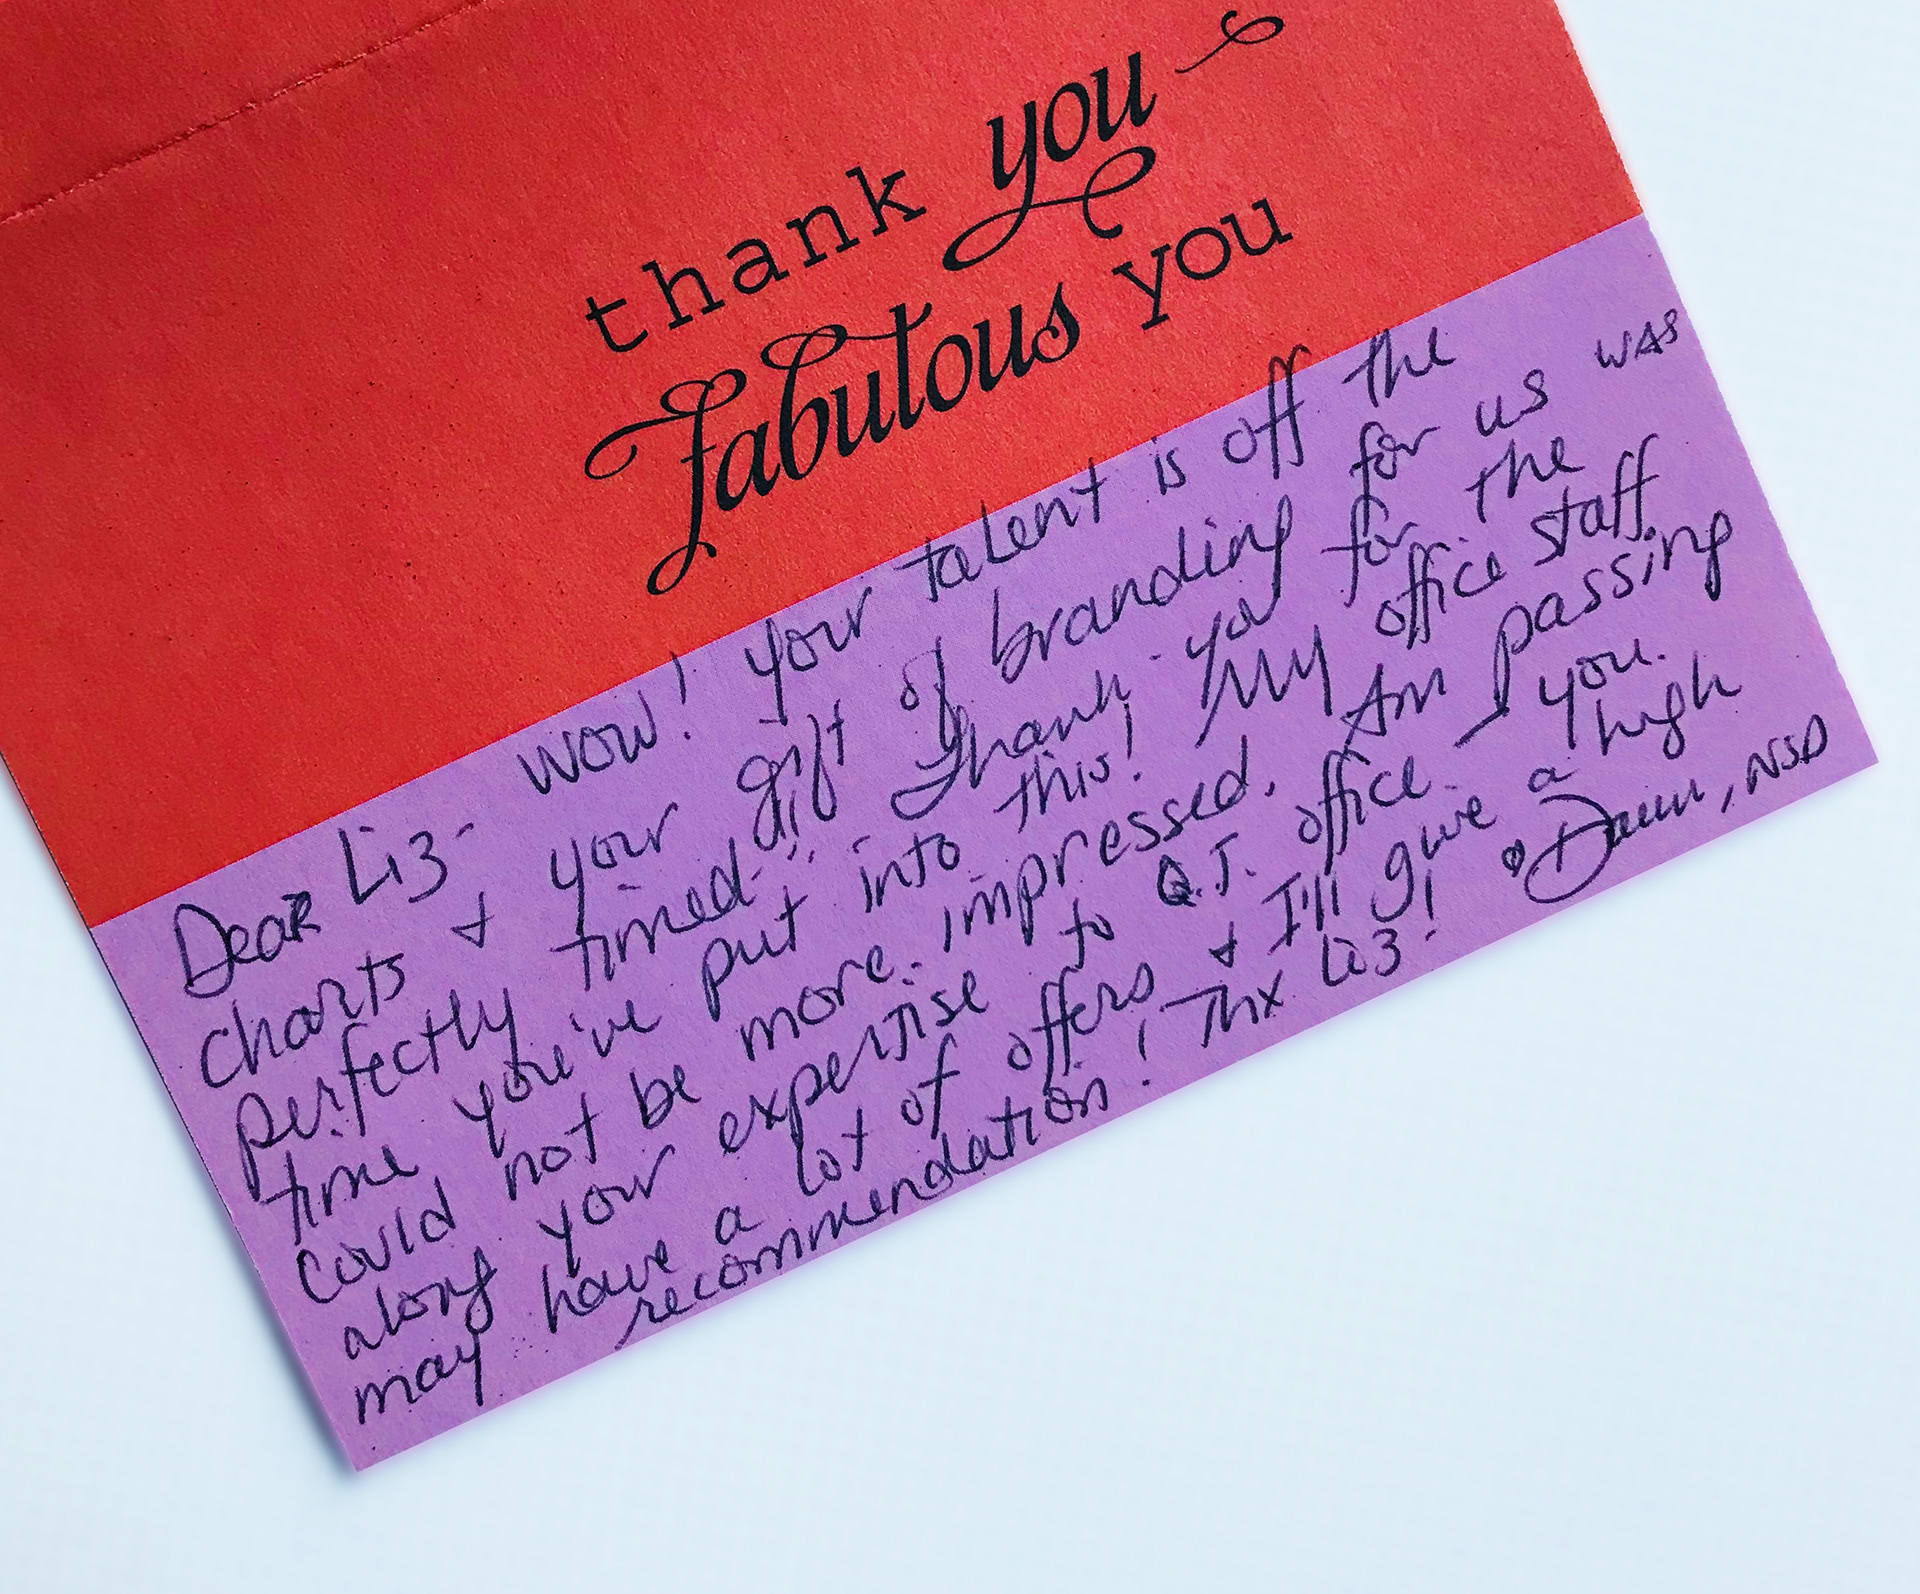 thank you
fabulous you
Dear Liz- Wow! Your talent is off the
charts & your gift of branding for us was
perfectly timed. Thank you for the
time you've put into this! My office staff
could not be more impressed. Am passing
along your expertise to Q.T. office - you
may have a lot of offers & I'll give a high
recommendation! Thx Liz!
♡ Dawn, NSD